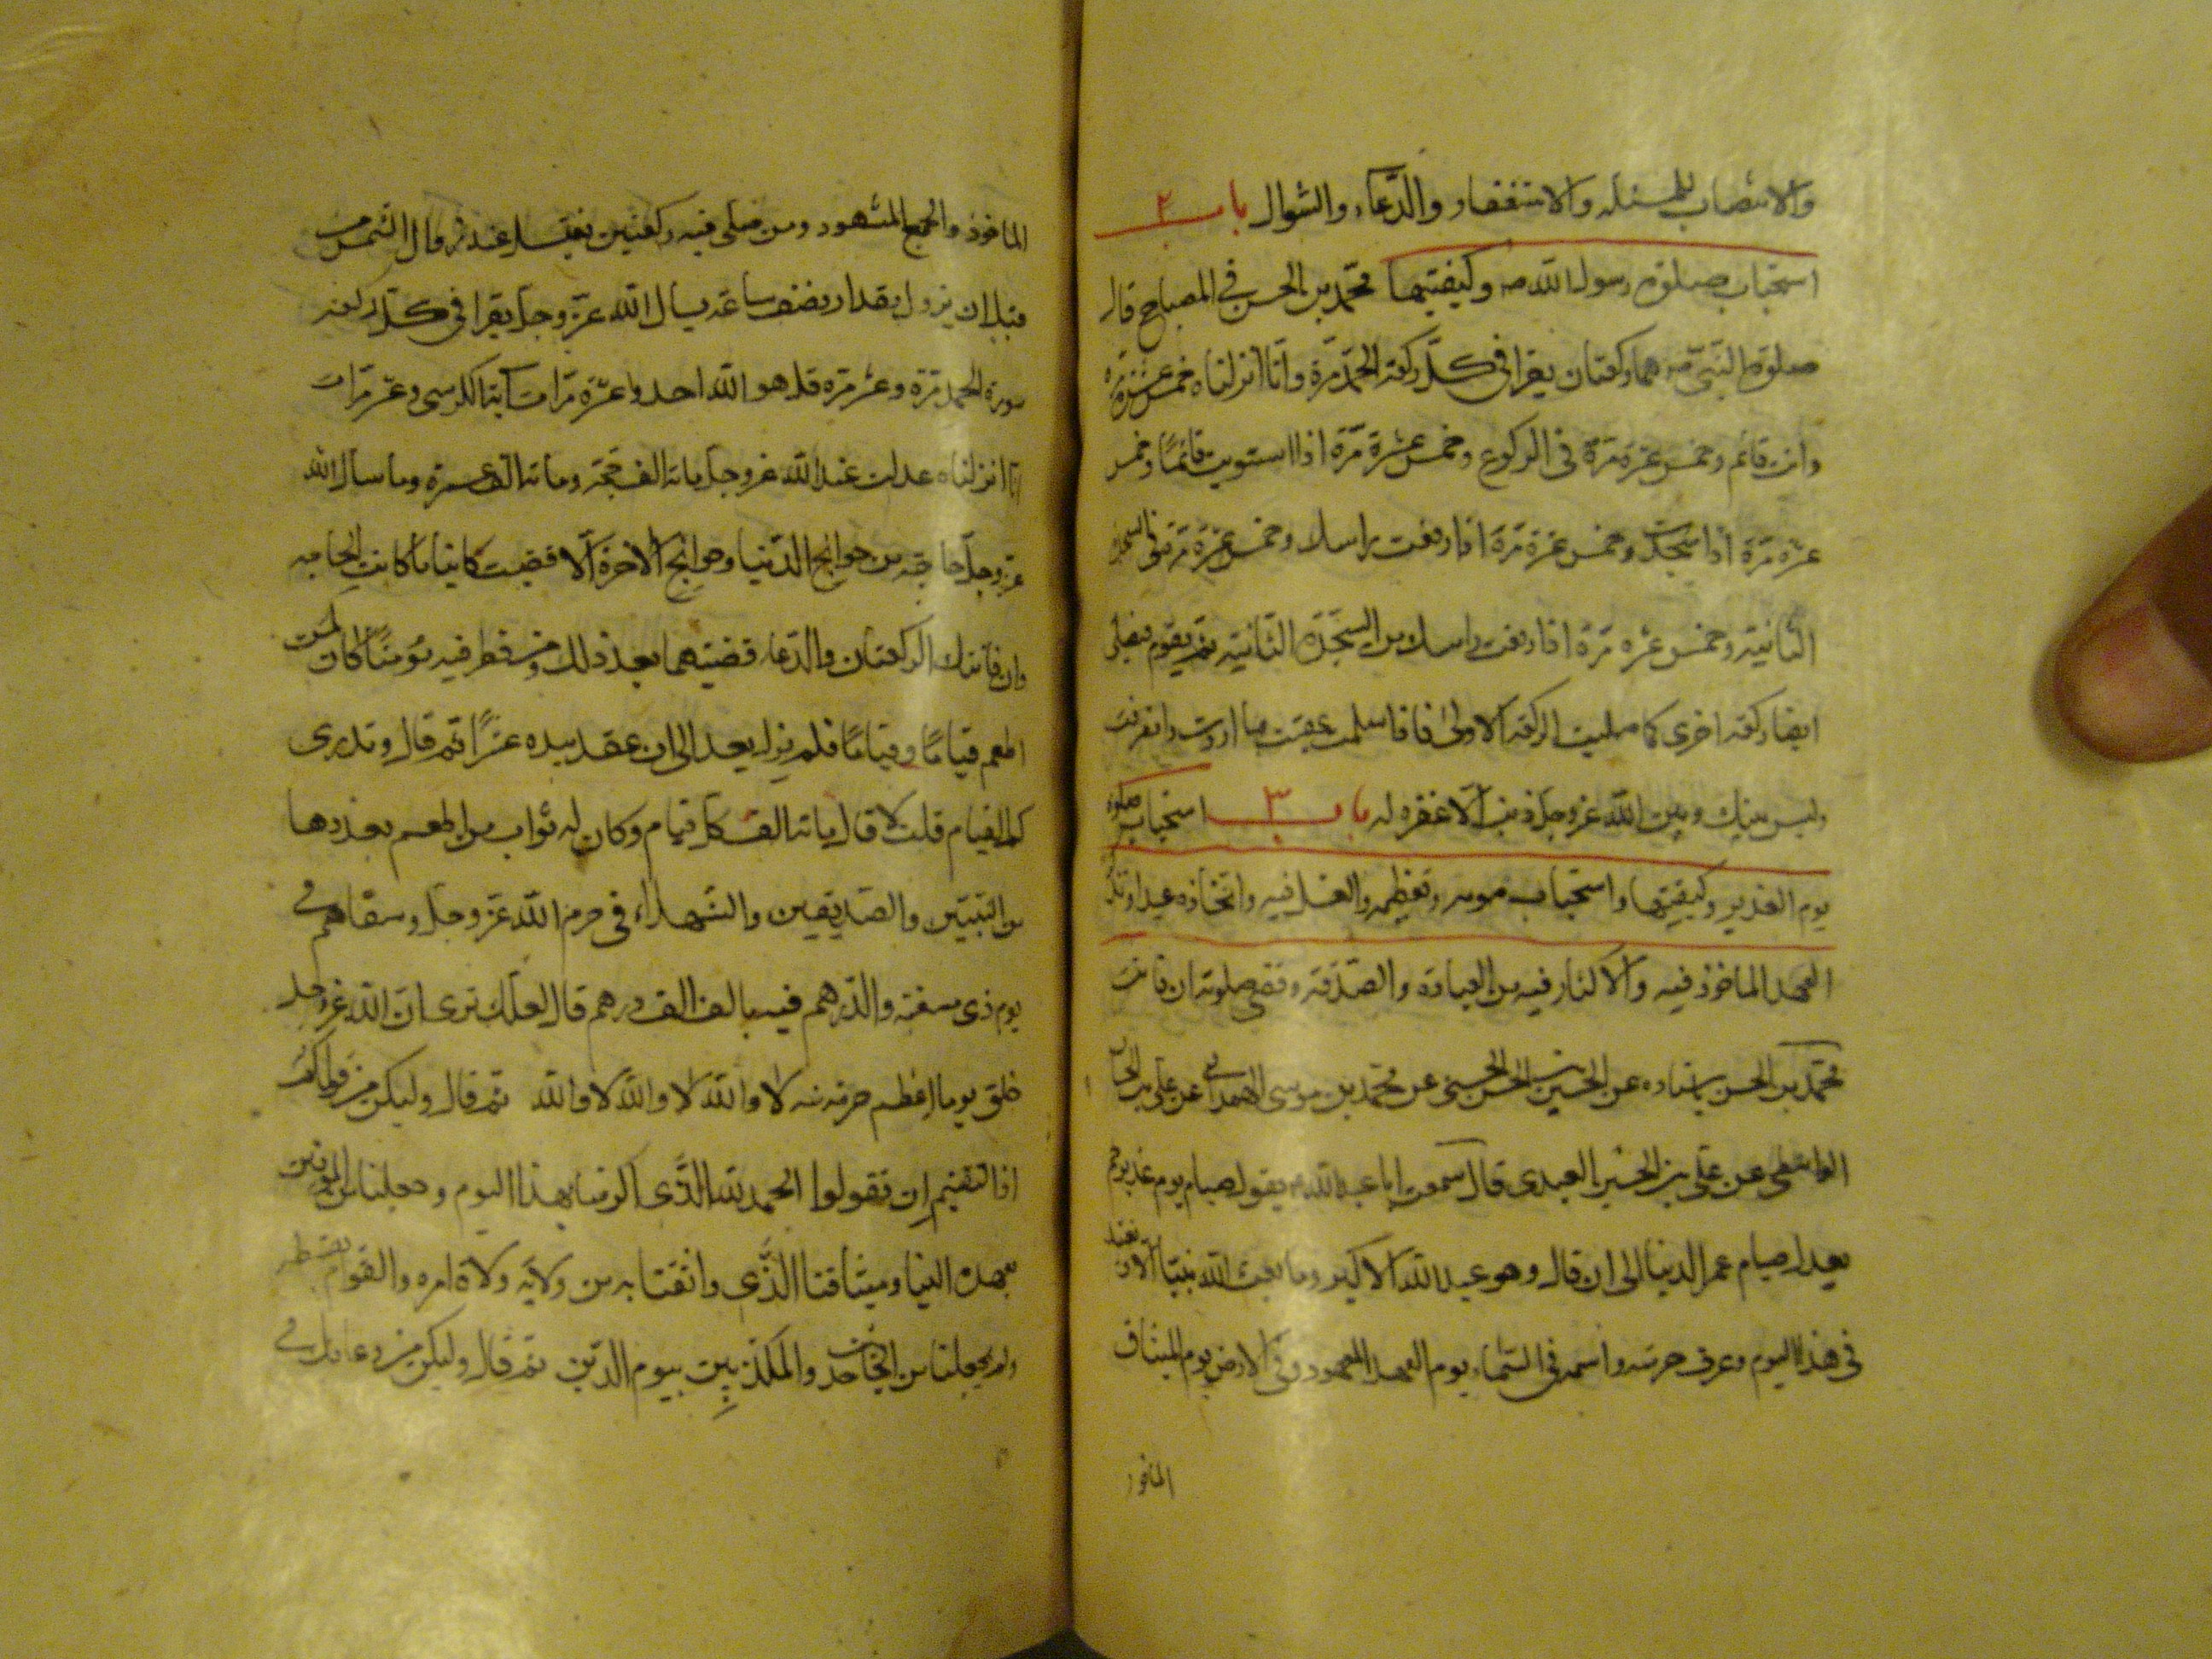 والانتصاب للمسئلة والاستغفار والدّعاء والسّوال باب ٢
استحباب صلوة رسول الله ص وكيفيتها محمّد بن الحسن في المصباح قال
صلوة النّبيّ ص هما ركعتان يقرا في كلّ ركعة الحمد مرّة وانّا انزلناه خمس عشرة مرّة
وانت قائم وخمس عشرة مرّة في الركوع وخمس عشرة مرّة اذا استويت قائمًا وخمس
عشرة مرّة اذا سجدت وخمس عشرة مرّة اذا رفعت راسك وخمس عشرة مرّة في السجدة
الثّانية وخمس عشرة مرّة اذا رفعت راسك من السّجدة الثّانية ثمّ يقوم فيصلى
ايضا ركعة اخرى كما صليت الركعة الاولى فاذا سلمت عقبت بما اردت وانصرفت
وليس بينك وبين الله عز وجل ذنب الّا غفره له باب ٣ استحباب صلوة
يوم الغدير وكيفيتها واستحباب صومه وتعظيمه والغسل فيه واتّخاذه عيدا وتذكر
العهد الماخوذ فيه والاكثار فيه من العبادة والصّدقة وقضى صلوته ان فاتت
محمّد بن الحسن باسناده عن الحسين بن الحسن الحسنى عن محمّد بن موسى الهمداني عن على بن حسان
الواسطى عن علي بن الحسين العبدى قال سمعت ابا عبد الله ع يقول صيام يوم غدير خم
يعدل صيام عمر الدنيا الى ان قال وهو عيد الله الاكبر وما بعث الله نبيّا الّا وتعيد
في هذا اليوم وعرف حرمته واسمه في السّماء يوم العهد المعهود وفي الارض يوم الميثاق
الماخوذ
الماخوذ والجمع المشهود ومن صلى فيه ركعتين يغتسل عند زوال الشّمس من
قبل ان تزول بمقدار نصف ساعة يسال الله عزّ وجلّ يقرا في كلّ ركعة
سورة الحمد مرّة وعشر مرّة قل هو الله احد وعشرة مرّات آية الكرسى وعشر مرّات
انّا انزلناه عدلت عند الله عزوجل مائة الف حجّة ومائة الف عمرة وما سال الله
عزّ وجلّ حاجة من حوائج الدّنيا وحوائج الآخرة الّا قضيت كائنا ما كانت الحاجة
وان فاتتك الركعتان والدّعاء قضيتهما بعد ذلك ومن فطر فيه مؤمنًا كان كمن
اطعم فياما وفياما فلم يزل يعد الى ان عقد بيده عشرًا ثم قال وتدرى
كم الفيام قلت لا قال مائة الف كلّ فيام وكان له ثواب من اطعم بعددها
من النّبيّين والصّدّيقين والشّهداء في حرم الله عزّ وجلّ وسقاهم في
يوم ذى مسغبة والدّرهم فيه بالف الف درهم قال لعلّك ترى انّ الله عز وجل
خلق يوما اعظم حرمة منه لا والله لا والله لا والله ثم قال وليكن من قولكم
اذا التقيتم ان تقولوا الحمد لله الّذى اكرمنا بهذا اليوم وجعلنا من الموفين
بعهده الينا وميثاقنا الّذى واثقنا به من ولاية ولاة امره والقوام بقسطه
ولم يجعلنا من الجاحدين والمكذّبين بيوم الدّين ثم قال وليكن من دعائك في